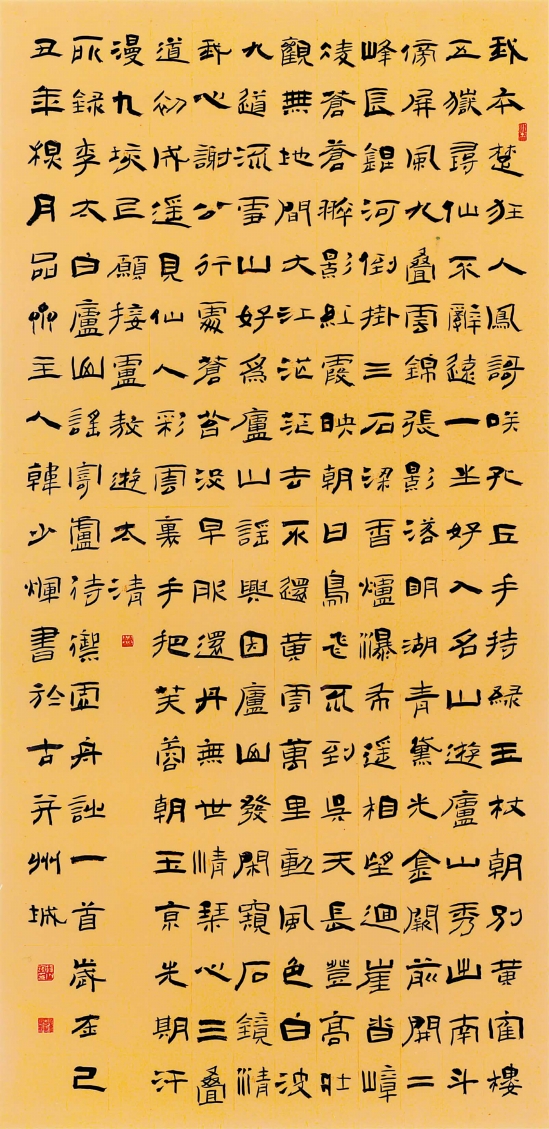 我本楚狂人鳳謌咲孔丘手持綠玉杖朝別黃寉樓
五嶽尋仙不辭遠一生好入名山遊廬山秀出南斗
傍屏風九疊雲錦張影落明湖青黛光金闕前開二
峰長銀河倒掛三石梁香爐瀑布遙相望迴崖沓嶂
凌蒼蒼翠影紅霞映朝日鳥飛不到吳天長登高壯
觀天地間大江茫茫去不還黃雲萬里動風色白波
九道流雪山好為廬山謠興因廬山發閑窺石鏡清
我心謝公行處蒼苔沒早服還丹無世情琴心三疊
道初成遙見仙人彩雲裏手把芙蓉朝玉京先期汗
漫九垓上願接盧敖遊太清
所錄李太白廬山謠寄盧侍御虛舟詩一首歲在己
丑年槐月品艸主人韓少煇書於古并州城